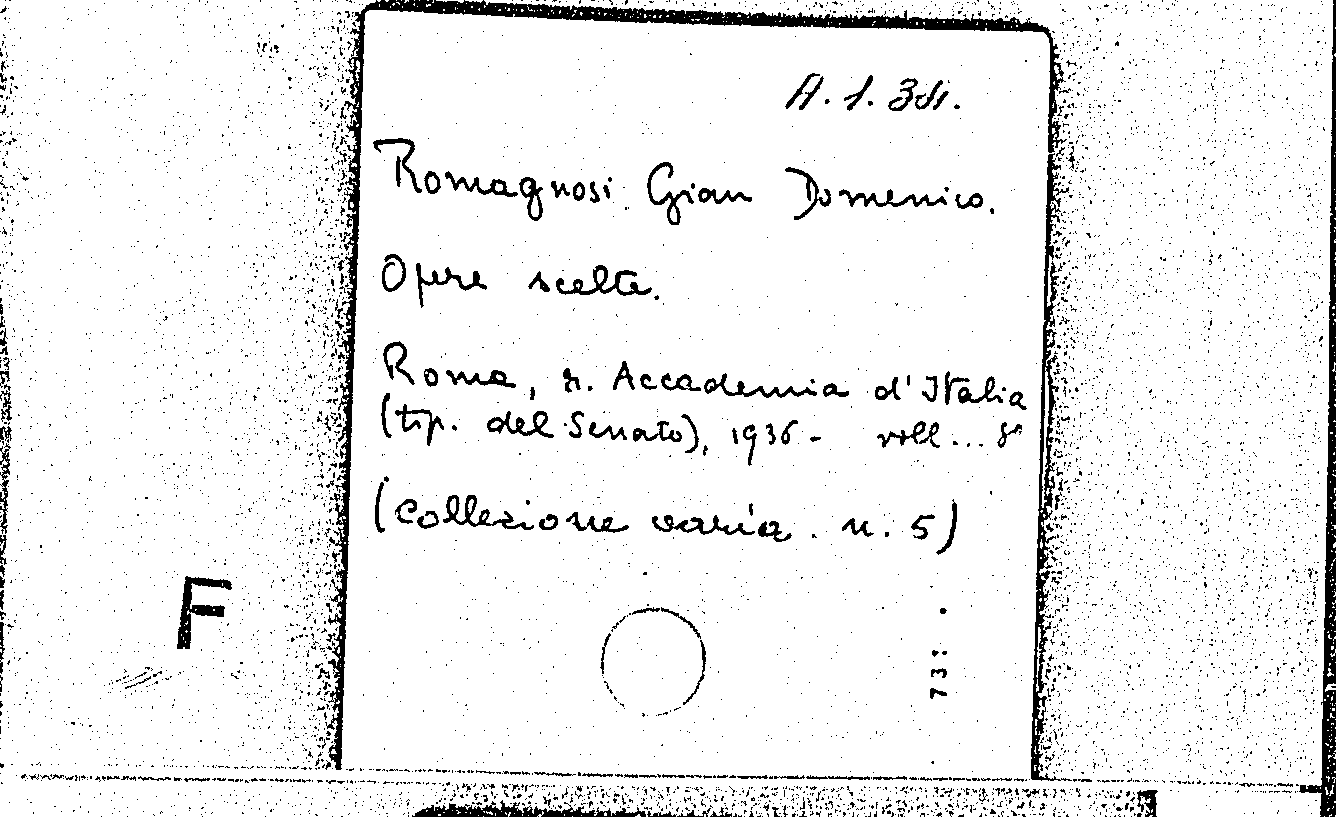 A. 1.
Romagnosi Gian Domenico.
Opere scelte.
Roma, r. Accademia d'Italia
(tip. del Senato), 1936 - voll... 8°
(Collezione varia. n. 5)
F
73: